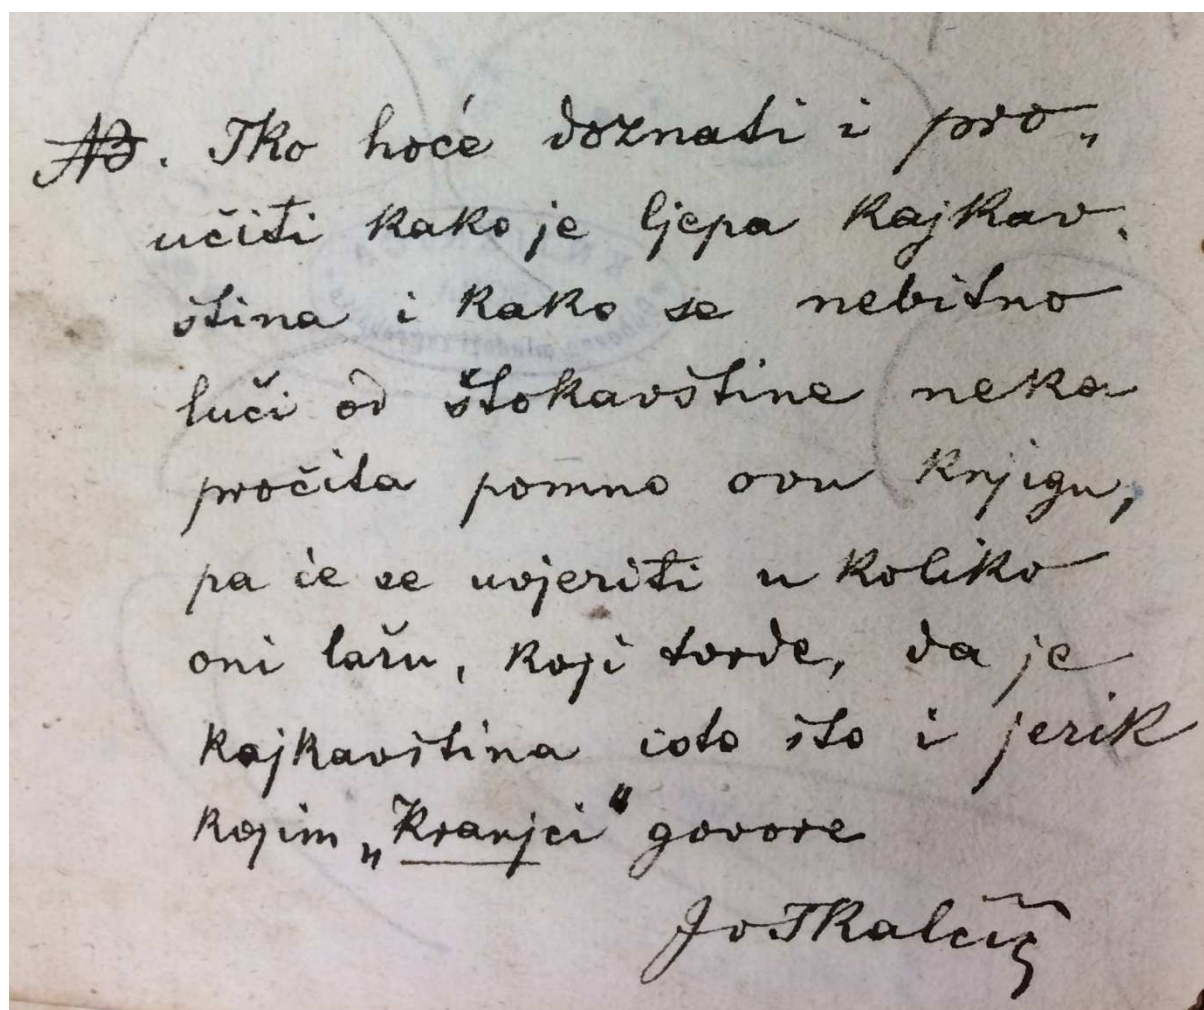 NB. Tko hoće doznati i pro„
učiti kako je ljepa kajkav.
ština i kako se nebitno
luči od štokavštine neka
pročita pomno ovu knjigu,
pa će se uvjeriti u koliko
oni lažu, koji tvrde, da je
kajkavština isto što i jezik
kojim „Kranjci“ govore
IvTkalčić